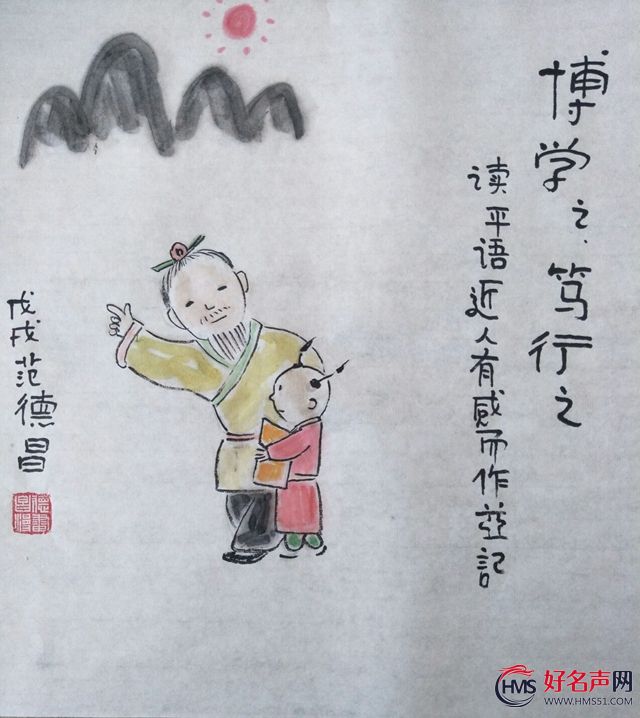 博学之、笃行之
读平语近人有感而作並記
戊戌范德昌
HMS
好名声网
WWW.HMS51.COM